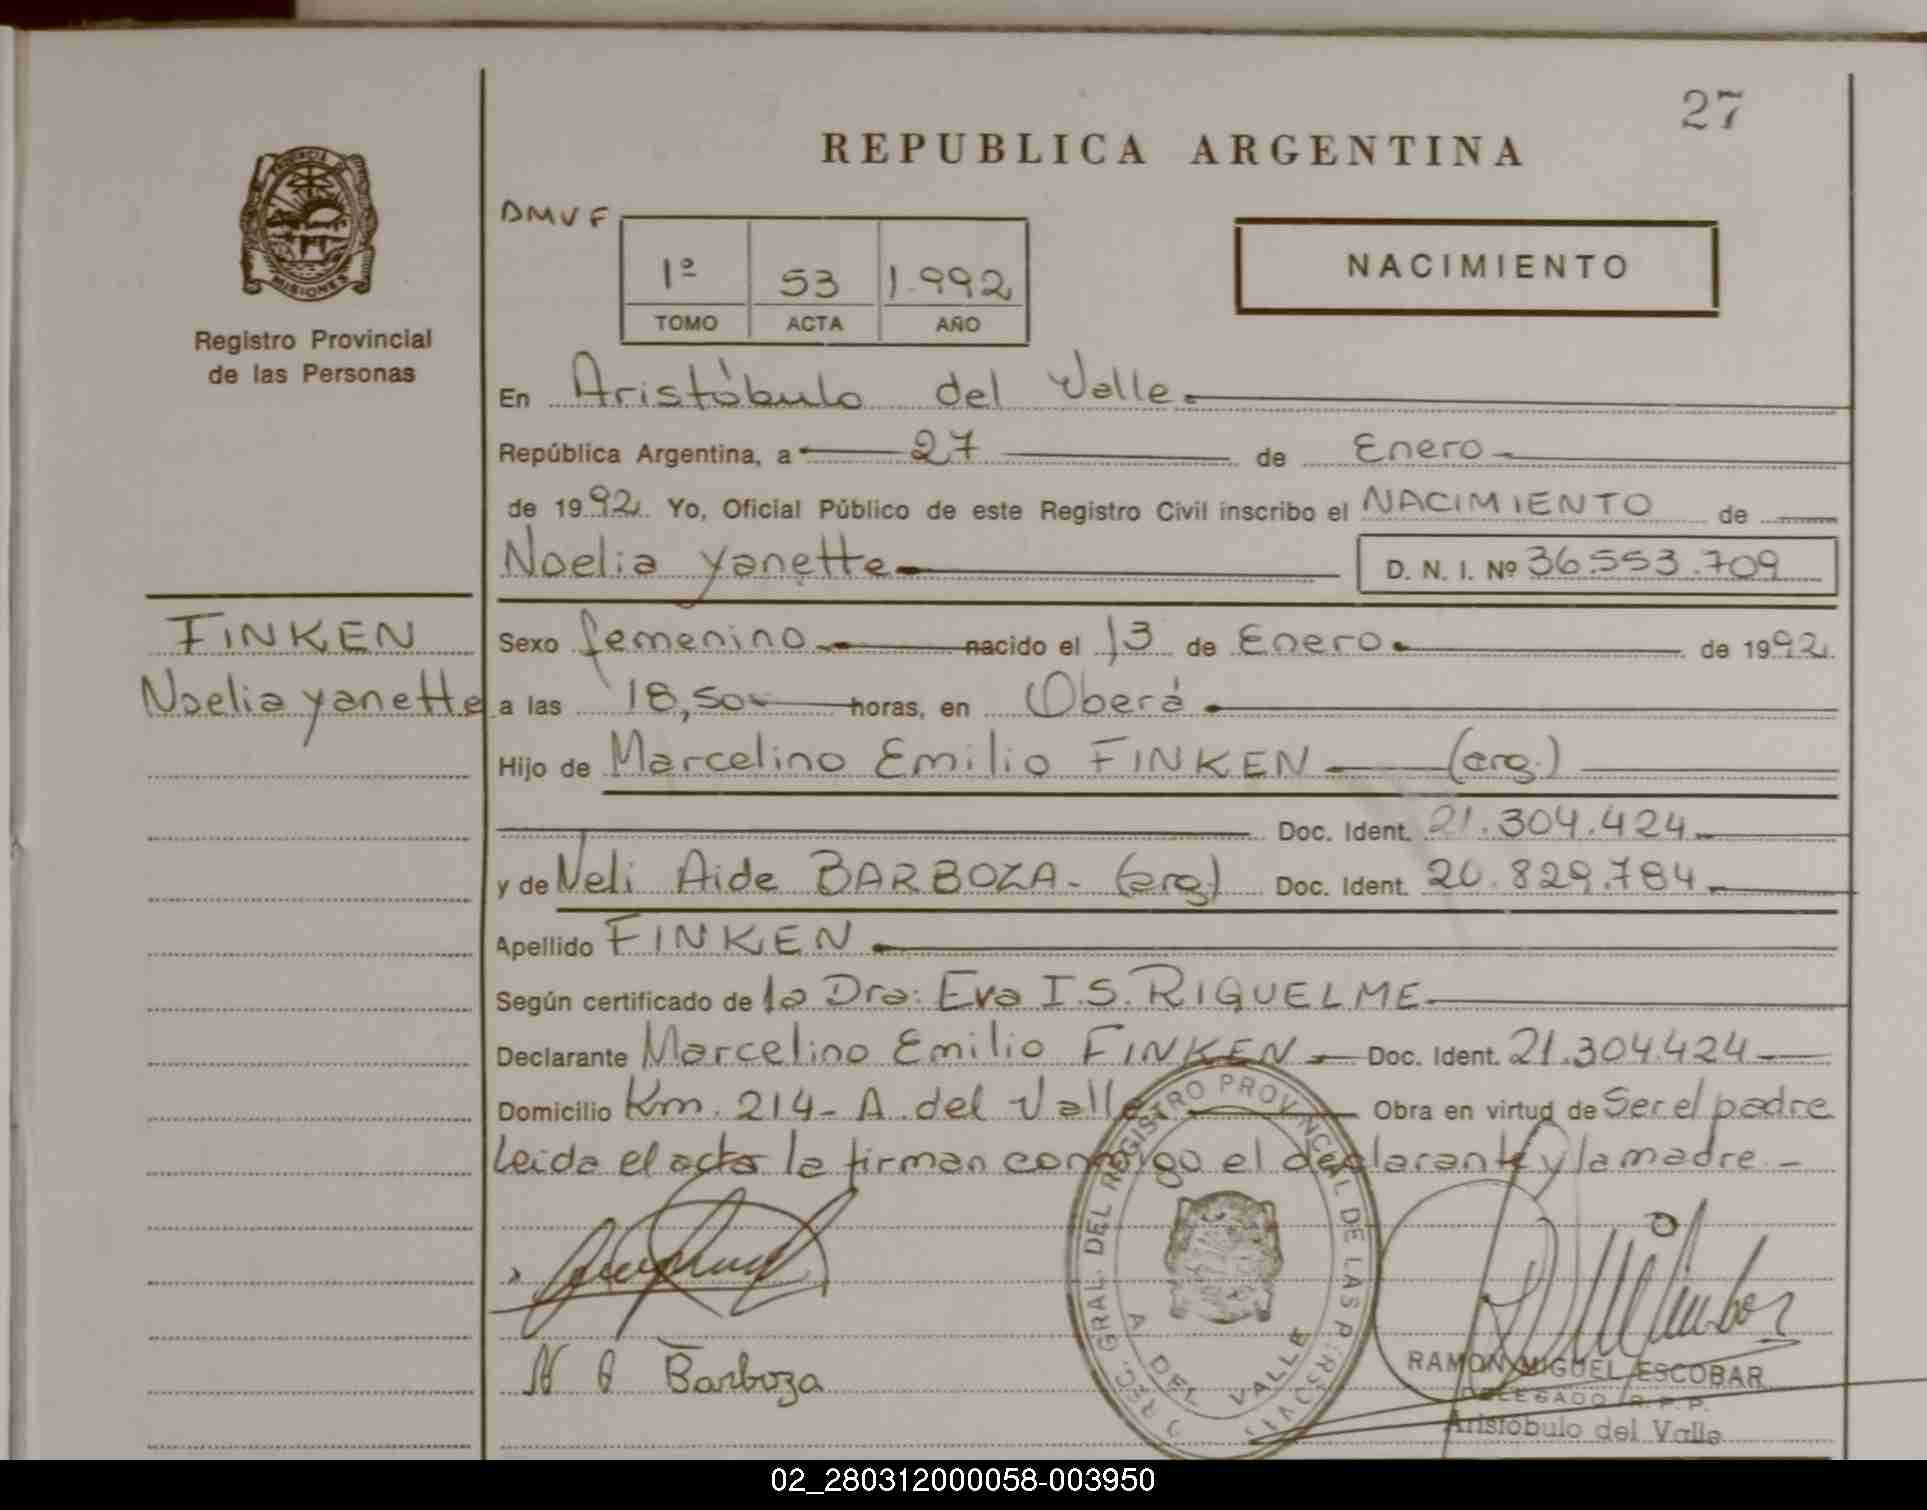 27
REPUBLICA ARGENTINA
PROVINCIA DE
MISIONES
Registro Provincial
de las Personas
DMVF
1º 53 1.992
TOMO ACTA AÑO
NACIMIENTO
En Aristóbulo del Valle.
República Argentina, a 27 de Enero
de 1992. Yo, Oficial Público de este Registro Civil inscribo el NACIMIENTO de
Noelia Yanette D. N. I. Nº 36.553.709
FINKEN
Noelia Yanette
Sexo femenino nacido el 13 de Enero de 1992.
a las 18,50 horas, en Oberá
Hijo de Marcelino Emilio FINKEN (arg.)
Doc. Ident. 21.304.424
y de Neli Aide BARBOZA- (arg.) Doc. Ident. 20.829.784
Apellido FINKEN
Según certificado de la Dra: Eva I.S. RIQUELME
Declarante Marcelino Emilio FINKEN Doc. Ident. 21.304.424
Domicilio Km. 214- A. del Valle Obra en virtud de Ser el padre
Leida el acta la firman conmigo el declarante y la madre.-
GRAL. DEL REGISTRO PROVINCIAL DE LAS PERSONAS
A. DEL VALLE
N A Barboza
RAMON MIGUEL ESCOBAR
DELEGADO R.P.P.
Aristóbulo del Valle
02_280312000058-003950